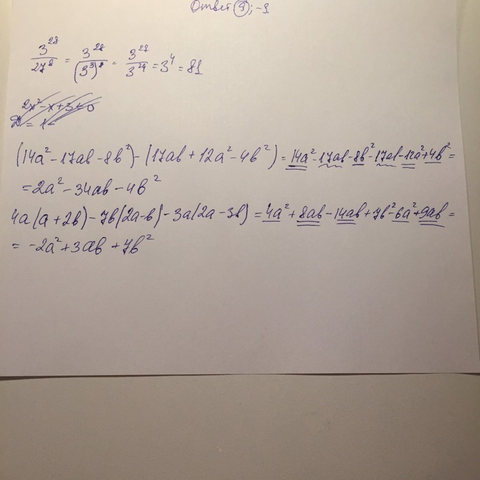 Ответ (9); -9
3^28/27^8 = 3^28/(3^3)^8 = 3^28/3^24 = 3^4 = 81
2x² - x + 3 = 0
D = 1 -
(14a² - 17ab - 8b²) - (17ab + 12a² - 4b²) = 14a² - 17ab - 8b² - 17ab - 12a² + 4b² =
= 2a² - 34ab - 4b²
4a(a + 2b) - 7b(2a - b) - 3a(2a - 3b) = 4a² + 8ab - 14ab + 7b² - 6a² + 9ab =
= -2a² + 3ab + 7b²